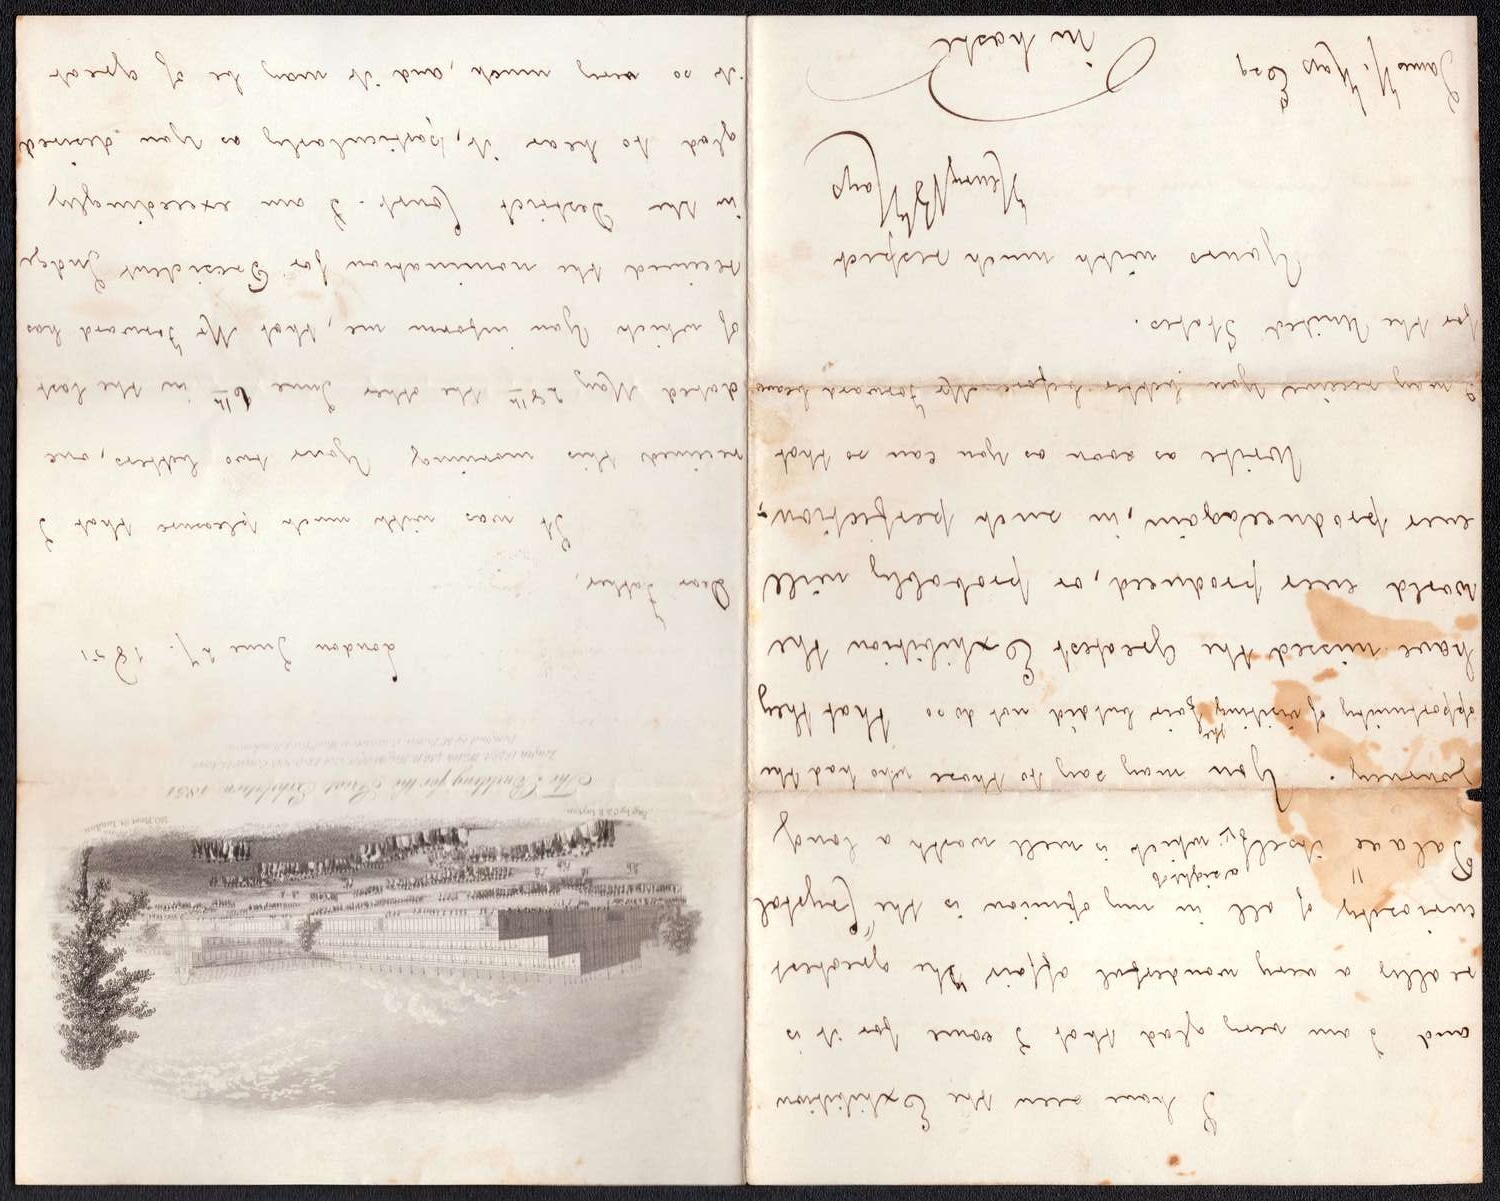 The Building for the Great Exhibition 1851
London June 27. 1851
Dear Father,
It was with much pleasure that I
received this morning Your two letters, one
dated May 28th the other June 6th in the last
of which You inform me, that Mr Forward has
received the nomination for President Judge
in the District Court. I am exceedingly
glad to hear it, particularly as You desired
it so very much, and it may be of great
I have seen the Exhibition
and I am very glad that I came for it is
really a very wonderful affair The greatest
curiosity of all in my opinion is the "Crystal
Palace" itself, a sight which is well worth a long
journey. You may say to those who had the
opportunity of visiting the fair but did not do so that they
have missed the Greatest Exhibition the
world ever produced, or probably will
ever produce again, in such perfection.
Write as soon as You can so that
I may receive Your letter before Mr Forward leaves
for the United States.
Yours with much respect
Henry B Hays
James H. Hays Esq In haste